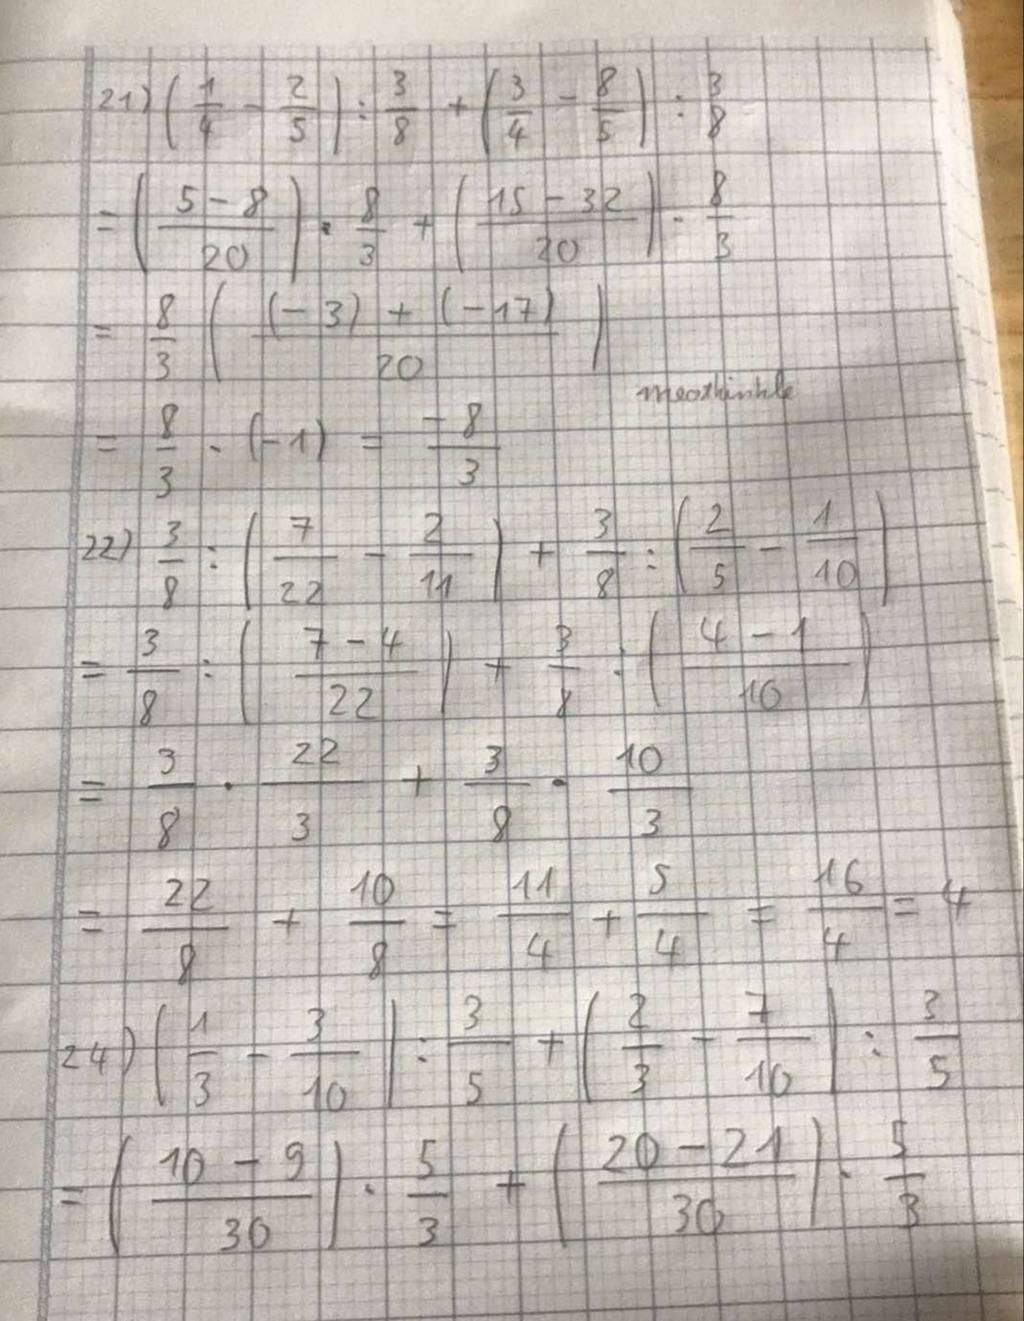 21) (1/4 - 2/5) : 3/8 + (3/4 - 8/5) : 3/8
= ((5 - 8)/20) · 8/3 + ((15 - 32)/20) · 8/3
= 8/3 (((-3) + (-17))/20)
= 8/3 · (-1) = -8/3
22) 3/8 : (7/22 - 2/11) + 3/8 : (2/5 - 1/10)
= 3/8 : ((7 - 4)/22) + 3/8 : ((4 - 1)/10)
= 3/8 · 22/3 + 3/8 · 10/3
= 22/8 + 10/8 = 11/4 + 5/4 = 16/4 = 4
24) (1/3 - 3/10) : 3/5 + (2/3 - 7/10) : 3/5
= ((10 - 9)/30) · 5/3 + ((20 - 21)/30) · 5/3